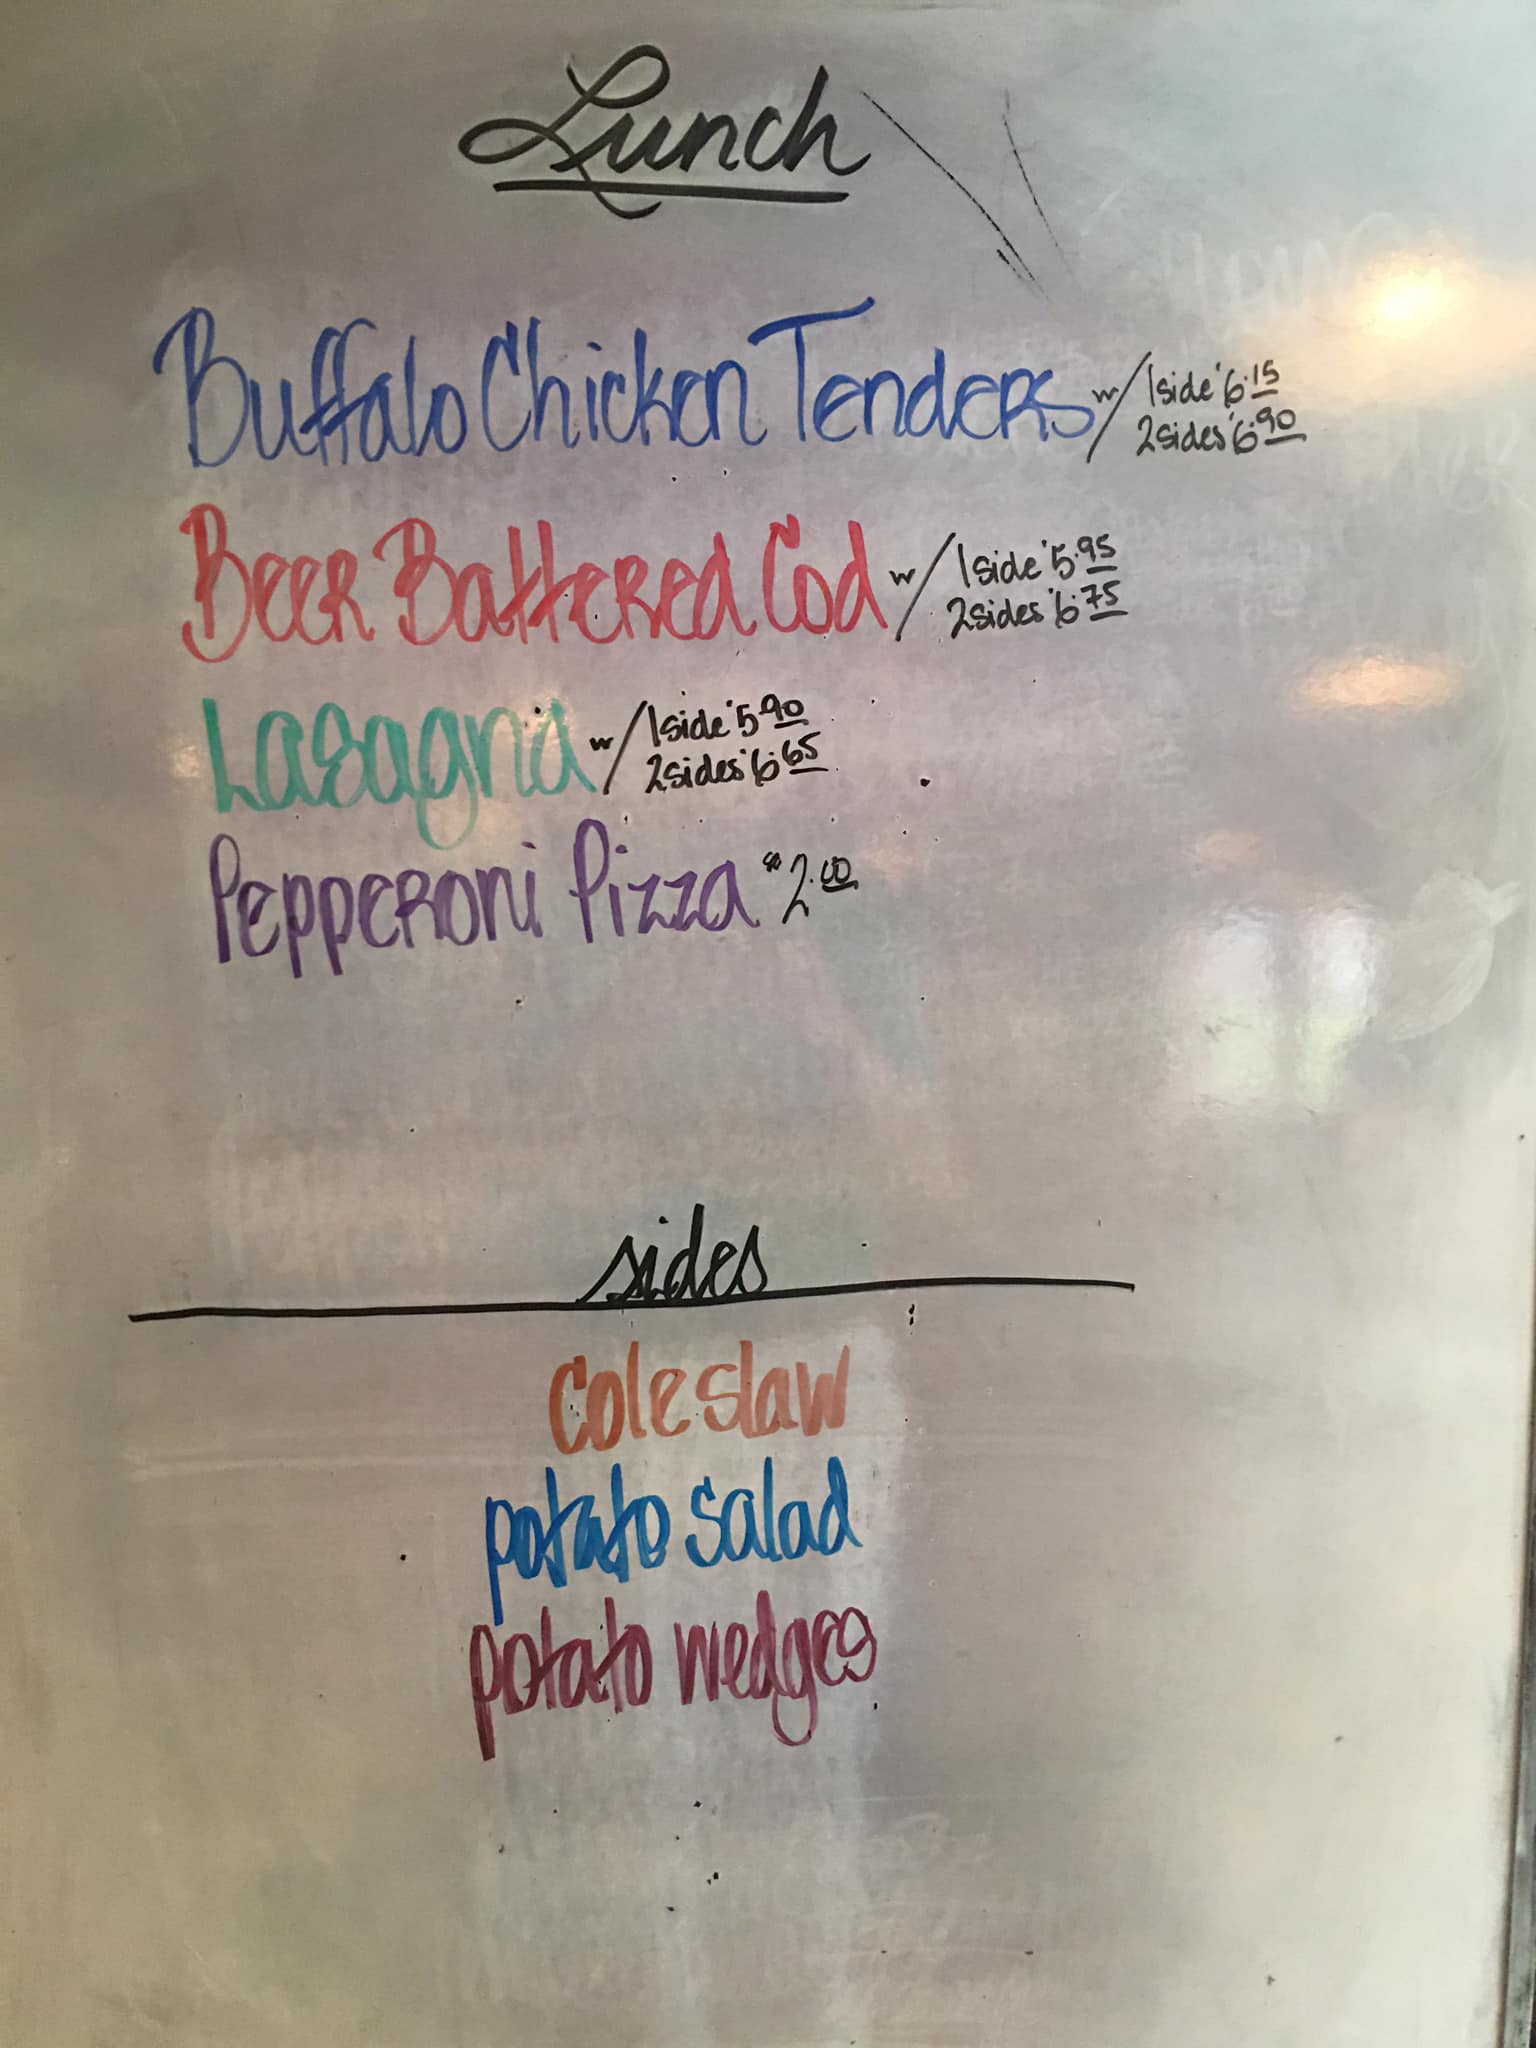 Lunch
Buffalo Chicken Tenders w/ 1 side 6.15
2 sides 6.90
Beer Battered Cod w/ 1 side 5.95
2 sides 6.75
Lasagna w/ 1 side 5.90
2 sides 6.65
Pepperoni Pizza $2.00
sides
coleslaw
potato salad
potato wedges